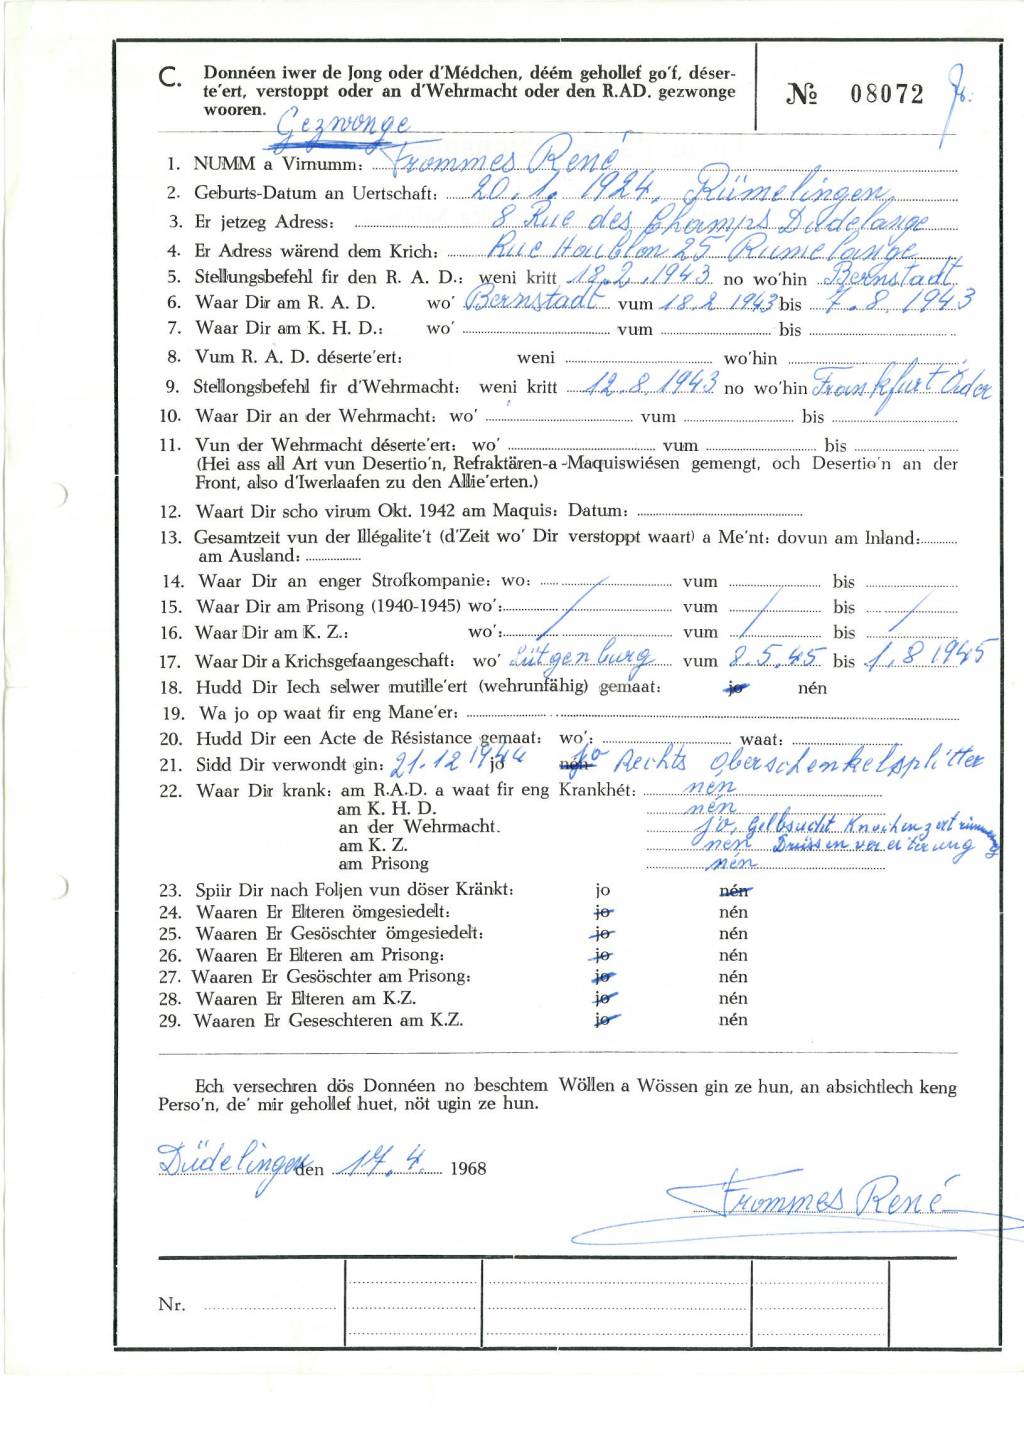 C. Donnéen iwer de Jong oder d'Médchen, déém gehollef go'f, déser-
te'ert, verstoppt oder an d'Wehrmacht oder den R.AD. gezwonge
wooren.
№ 08072
Gezwonge
1. NUMM a Virnumm: Frommes René
2. Geburts-Datum an Uertschaft: 20.1.1924, Rümelingen
3. Er jetzeg Adress: 8 Rue des Champs Dudelange
4. Er Adress wärend dem Krich: Rue Houblon 25 Rumelange
5. Stellungsbefehl fir den R. A. D.: weni kritt 18.2.1943 no wo'hin Bernstadt
6. Waar Dir am R. A. D. wo' Bernstadt vum 18.2 1943 bis 7.8.1943
7. Waar Dir am K. H. D.: wo' vum bis
8. Vum R. A. D. déserte'ert: weni wo'hin
9. Stellongsbefehl fir d'Wehrmacht: weni kritt 12.8.1943 no wo'hin Frankfurt Oder
10. Waar Dir an der Wehrmacht: wo' vum bis
11. Vun der Wehrmacht déserte'ert: wo' vum bis
(Hei ass all Art vun Desertio'n, Refraktären-a -Maquiswiésen gemengt, och Desertio'n an der
Front, also d'Iwerlaafen zu den Allie'erten.)
12. Waart Dir scho virum Okt. 1942 am Maquis: Datum:
13. Gesamtzeit vun der Illégalite't (d'Zeit wo' Dir verstoppt waart) a Me'nt: dovun am Inland:
am Ausland:
14. Waar Dir an enger Strofkompanie: wo: vum bis
15. Waar Dir am Prisong (1940-1945) wo': vum bis
16. Waar Dir am K. Z.: wo': vum bis
17. Waar Dir a Krichsgefaangeschaft: wo' Lütgenburg vum 8.5.45 bis 1.8 1945
18. Hudd Dir Iech selwer mutille'ert (wehrunfähig) gemaat: jo nén
19. Wa jo op waat fir eng Mane'er:
20. Hudd Dir een Acte de Résistance gemaat: wo': waat:
21. Sidd Dir verwondt gin: 21.12 1944 jo nén jo Rechts Oberschenkelsplitter
22. Waar Dir krank: am R.A.D. a waat fir eng Krankhét: nén
am K. H. D. nén
an der Wehrmacht. jo, Gelbsucht Knochenzertrümmerung
am K. Z. nén Drüssenvereiterung
am Prisong nén
23. Spiir Dir nach Foljen vun döser Kränkt: jo nén
24. Waaren Er Elteren ömgesiedelt: jo nén
25. Waaren Er Gesöschter ömgesiedelt: jo nén
26. Waaren Er Elteren am Prisong: jo nén
27. Waaren Er Gesöschter am Prisong: jo nén
28. Waaren Er Elteren am K.Z. jo nén
29. Waaren Er Geseschteren am K.Z. jo nén
Ech versechren dös Donnéen no beschtem Wöllen a Wössen gin ze hun, an absichtlech keng
Perso'n, de' mir gehollef huet, nöt ugin ze hun.
Düdelingen den 17.4. 1968
Frommes René
Nr.